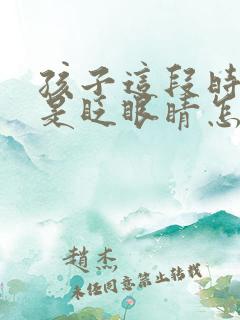 孩子這段時
是眨眼睛怎
趙杰
未經同意禁止轉載